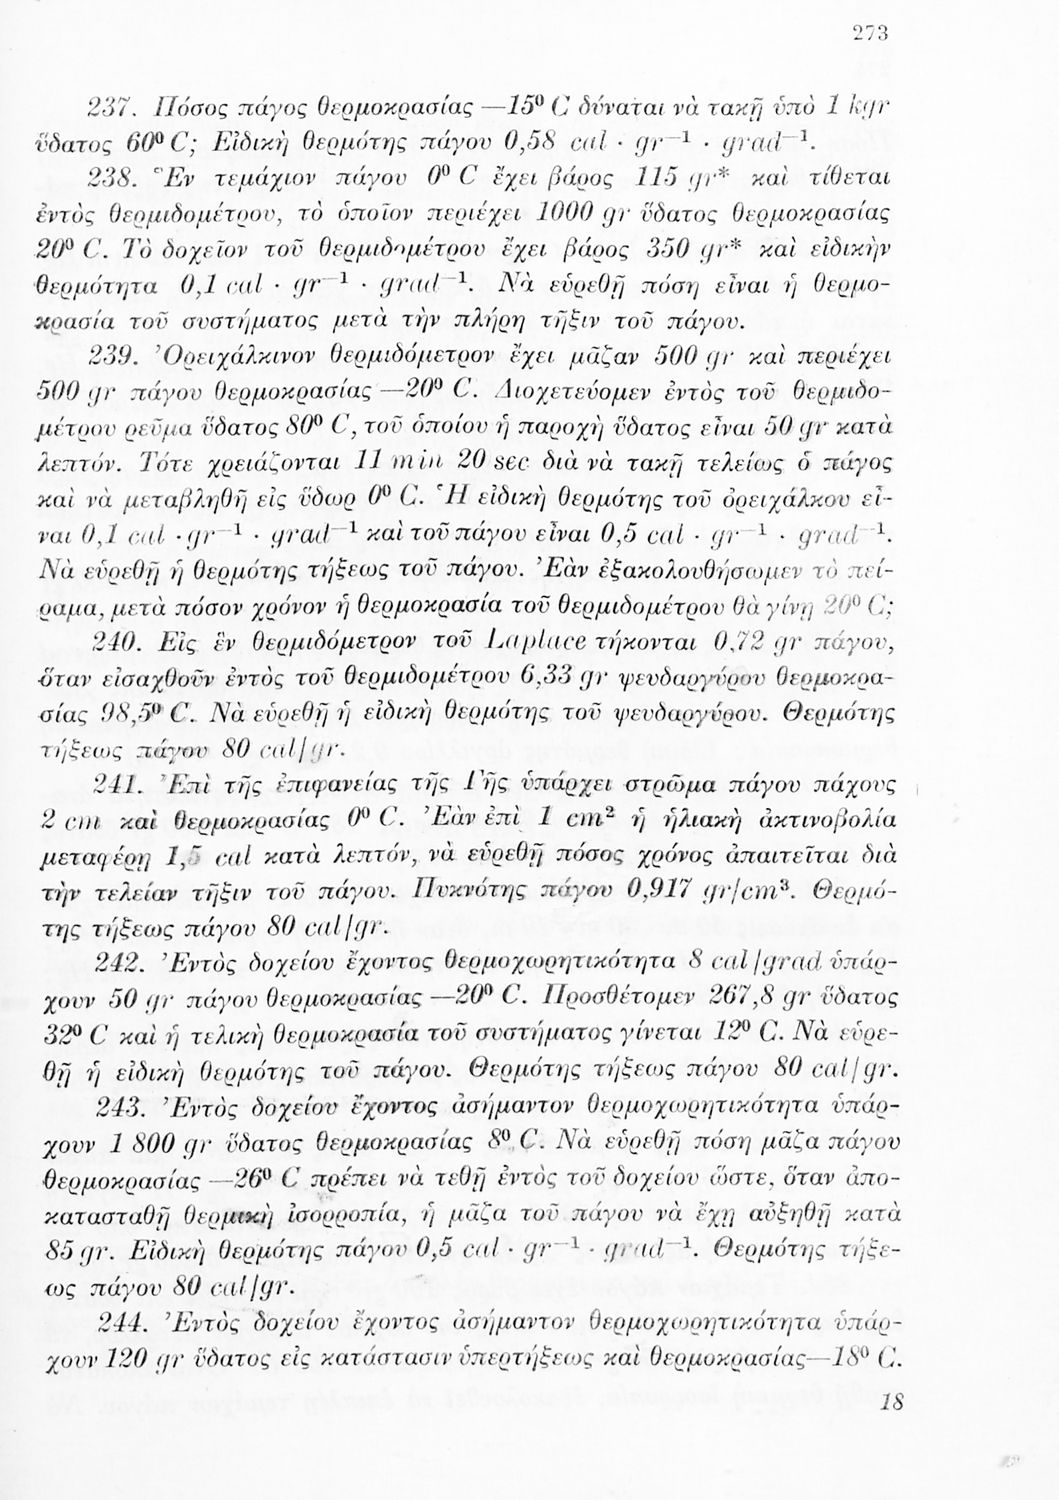 273
237. Πόσος πάγος θερμοκρασίας —15⁰ C δύναται νὰ τακῇ ὑπὸ 1 kgr
ὕδατος 60⁰ C; Εἰδικὴ θερμότης πάγου 0,58 cal · gr⁻¹ · grad⁻¹.
238. Ἓν τεμάχιον πάγου 0⁰ C ἔχει βάρος 115 gr* καὶ τίθεται
ἐντὸς θερμιδομέτρου, τὸ ὁποῖον περιέχει 1000 gr ὕδατος θερμοκρασίας
20⁰ C. Τὸ δοχεῖον τοῦ θερμιδομέτρου ἔχει βάρος 350 gr* καὶ εἰδικὴν
θερμότητα 0,1 cal · gr⁻¹ · grad⁻¹. Νὰ εὑρεθῇ πόση εἶναι ἡ θερμο-
κρασία τοῦ συστήματος μετὰ τὴν πλήρη τῆξιν τοῦ πάγου.
239. Ὀρειχάλκινον θερμιδόμετρον ἔχει μᾶζαν 500 gr καὶ περιέχει
500 gr πάγου θερμοκρασίας —20⁰ C. Διοχετεύομεν ἐντὸς τοῦ θερμιδο-
μέτρου ρεῦμα ὕδατος 80⁰ C, τοῦ ὁποίου ἡ παροχὴ ὕδατος εἶναι 50 gr κατὰ
λεπτόν. Τότε χρειάζονται 11 min 20 sec διὰ νὰ τακῇ τελείως ὁ πάγος
καὶ νὰ μεταβληθῇ εἰς ὕδωρ 0⁰ C. Ἡ εἰδικὴ θερμότης τοῦ ὀρειχάλκου εἶ-
ναι 0,1 cal · gr⁻¹ · grad⁻¹ καὶ τοῦ πάγου εἶναι 0,5 cal · gr⁻¹ · grad⁻¹.
Νὰ εὑρεθῇ ἡ θερμότης τήξεως τοῦ πάγου. Ἐὰν ἐξακολουθήσωμεν τὸ πεί-
ραμα, μετὰ πόσον χρόνον ἡ θερμοκρασία τοῦ θερμιδομέτρου θὰ γίνῃ 20⁰ C;
240. Εἰς ἓν θερμιδόμετρον τοῦ Laplace τήκονται 0,72 gr πάγου,
ὅταν εἰσαχθοῦν ἐντὸς τοῦ θερμιδομέτρου 6,33 gr ψευδαργύρου θερμοκρα-
σίας 98,5⁰ C. Νὰ εὑρεθῇ ἡ εἰδικὴ θερμότης τοῦ ψευδαργύρου. Θερμότης
τήξεως πάγου 80 cal/gr.
241. Ἐπὶ τῆς ἐπιφανείας τῆς Γῆς ὑπάρχει στρῶμα πάγου πάχους
2 cm καὶ θερμοκρασίας 0⁰ C. Ἐὰν ἐπὶ 1 cm² ἡ ἡλιακὴ ἀκτινοβολία
μεταφέρῃ 1,5 cal κατὰ λεπτόν, νὰ εὑρεθῇ πόσος χρόνος ἀπαιτεῖται διὰ
τὴν τελείαν τῆξιν τοῦ πάγου. Πυκνότης πάγου 0,917 gr/cm³. Θερμό-
της τήξεως πάγου 80 cal/gr.
242. Ἐντὸς δοχείου ἔχοντος θερμοχωρητικότητα 8 cal/grad ὑπάρ-
χουν 50 gr πάγου θερμοκρασίας —20⁰ C. Προσθέτομεν 267,8 gr ὕδατος
32⁰ C καὶ ἡ τελικὴ θερμοκρασία τοῦ συστήματος γίνεται 12⁰ C. Νὰ εὑρε-
θῇ ἡ εἰδικὴ θερμότης τοῦ πάγου. Θερμότης τήξεως πάγου 80 cal/gr.
243. Ἐντὸς δοχείου ἔχοντος ἀσήμαντον θερμοχωρητικότητα ὑπάρ-
χουν 1 800 gr ὕδατος θερμοκρασίας 8⁰ C. Νὰ εὑρεθῇ πόση μᾶζα πάγου
θερμοκρασίας —26⁰ C πρέπει νὰ τεθῇ ἐντὸς τοῦ δοχείου ὥστε, ὅταν ἀπο-
κατασταθῇ θερμικὴ ἰσορροπία, ἡ μᾶζα τοῦ πάγου νὰ ἔχῃ αὐξηθῆ κατὰ
85 gr. Εἰδικὴ θερμότης πάγου 0,5 cal · gr⁻¹ · grad⁻¹. Θερμότης τήξε-
ως πάγου 80 cal/gr.
244. Ἐντὸς δοχείου ἔχοντος ἀσήμαντον θερμοχωρητικότητα ὑπάρ-
χουν 120 gr ὕδατος εἰς κατάστασιν ὑπερτήξεως καὶ θερμοκρασίας—18⁰ C.
18